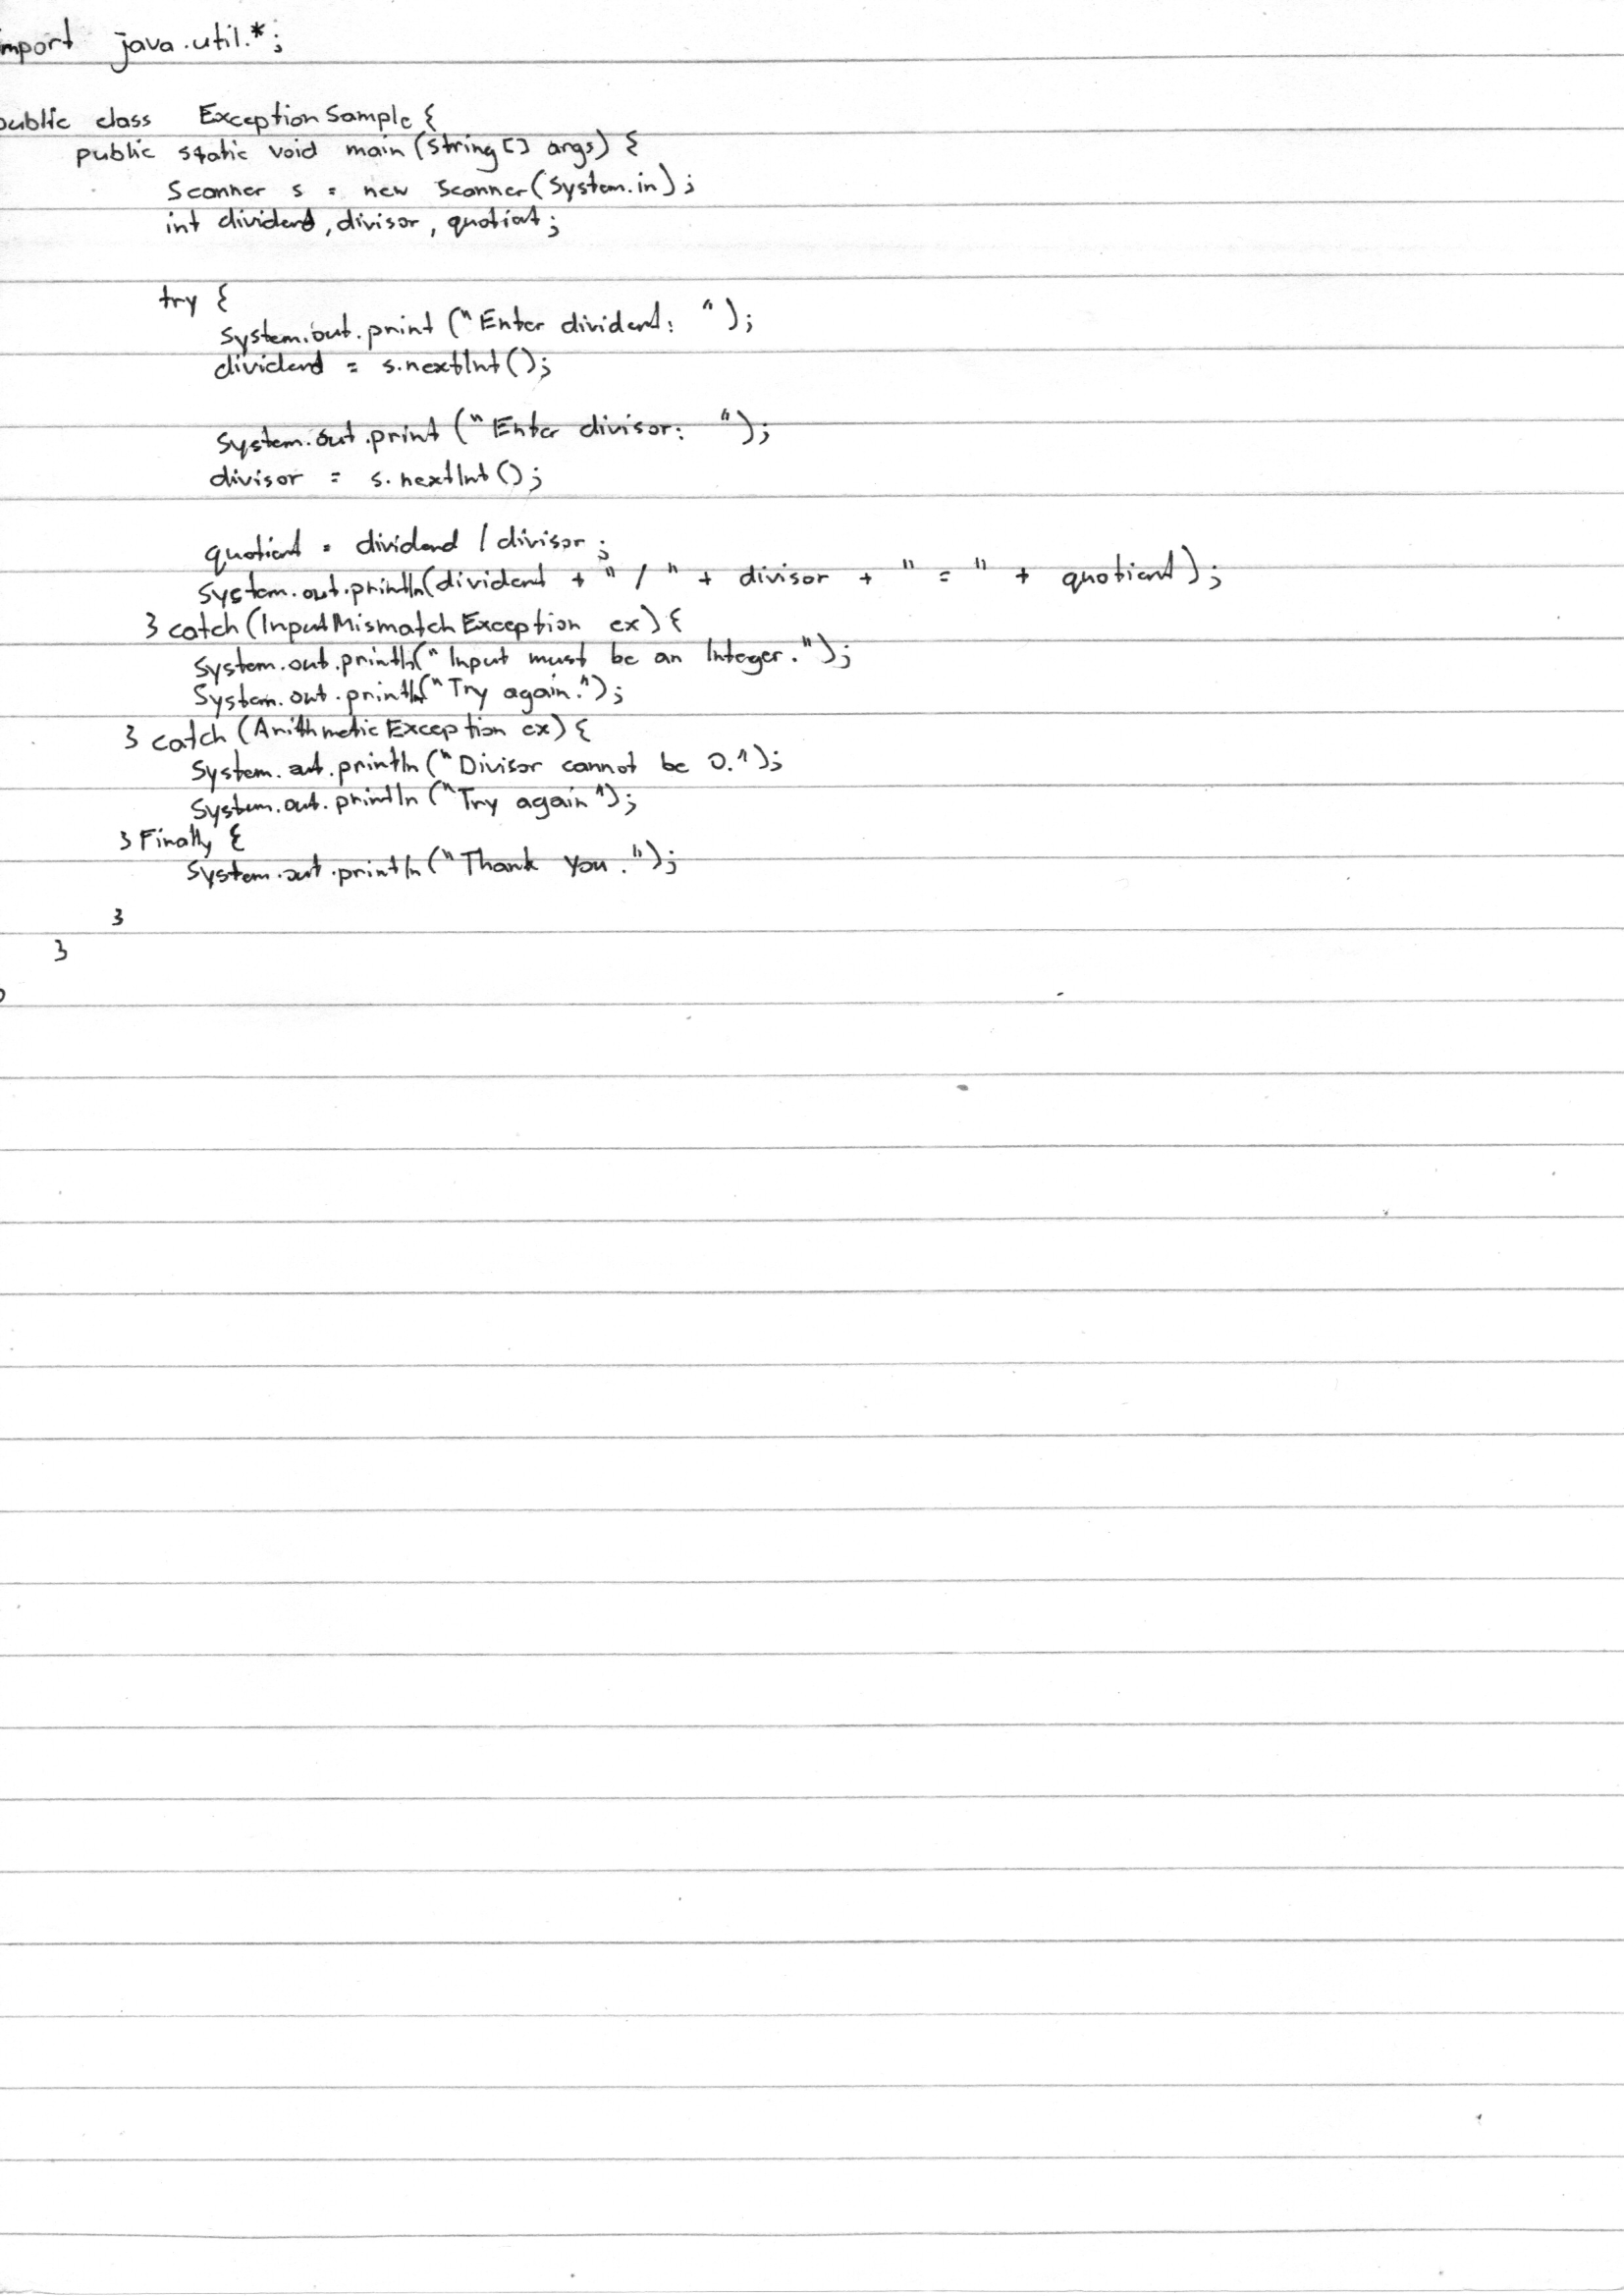 import java.util.*;
public class ExceptionSample {
public static void main(String[] args) {
Scanner s = new Scanner(System.in);
int dividend, divisor, quotient;
try {
System.out.print("Enter dividend: ");
dividend = s.nextInt();
System.out.print("Enter divisor: ");
divisor = s.nextInt();
quotient = dividend / divisor;
System.out.println(dividend + " / " + divisor + " = " + quotient);
} catch(InputMismatchException ex) {
System.out.println("Input must be an Integer.");
System.out.println("Try again.");
} catch (ArithmeticException ex) {
System.out.println("Divisor cannot be 0.");
System.out.println("Try again");
} Finally {
System.out.println("Thank you.");
}
}
}